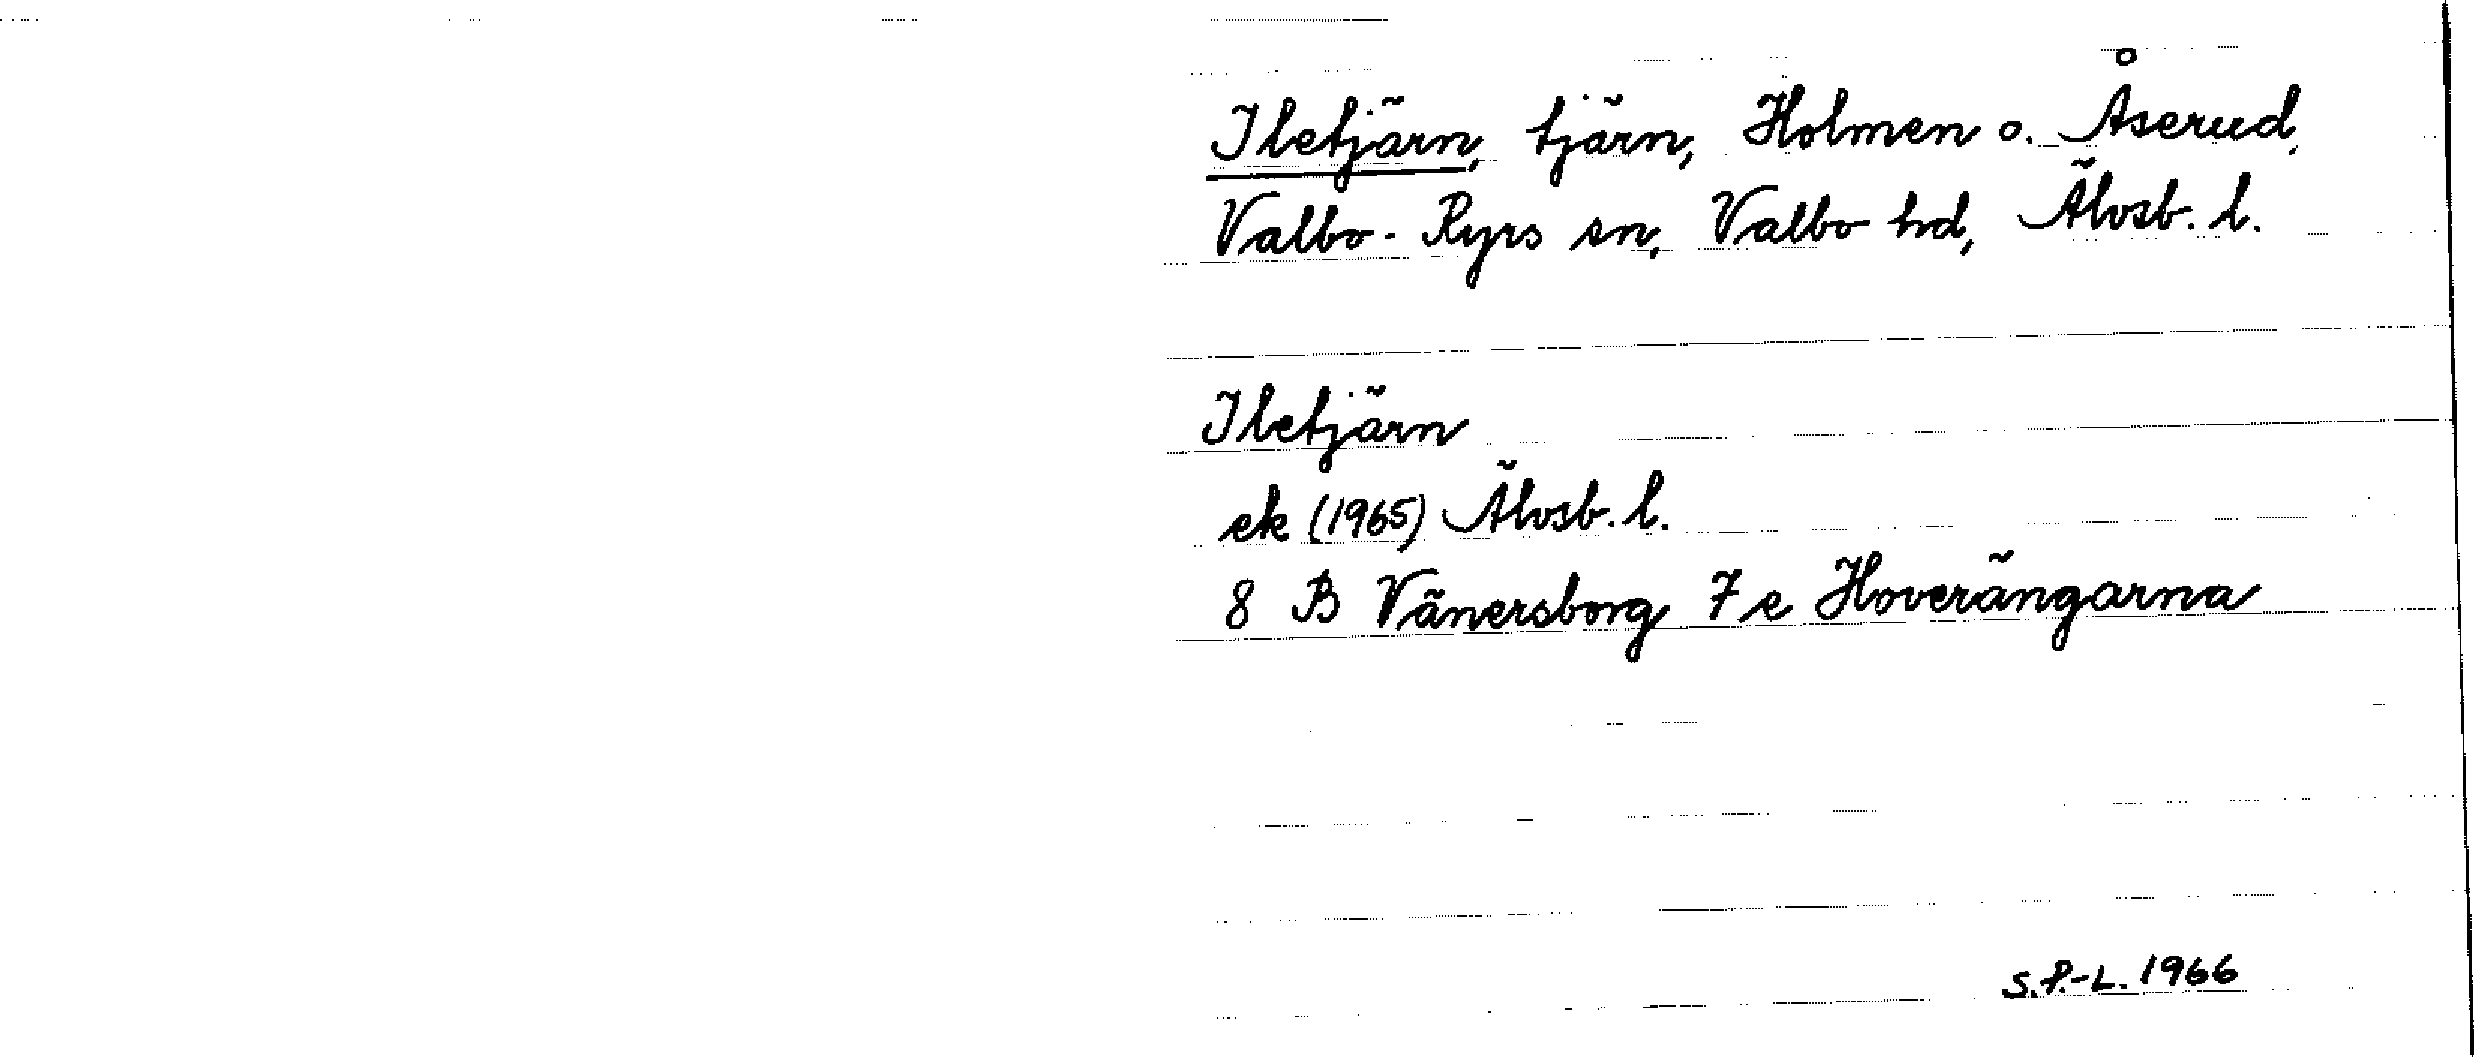 Iletjärn, tjärn, Holmen o. Åserud,
Valbo-Ryrs sn, Valbo hd, Älvsb. l.
Iletjärn
ek (1965) Älvsb. l.
8 B Vänersborg 7 e Hoverängarna
S.P.-L. 1966